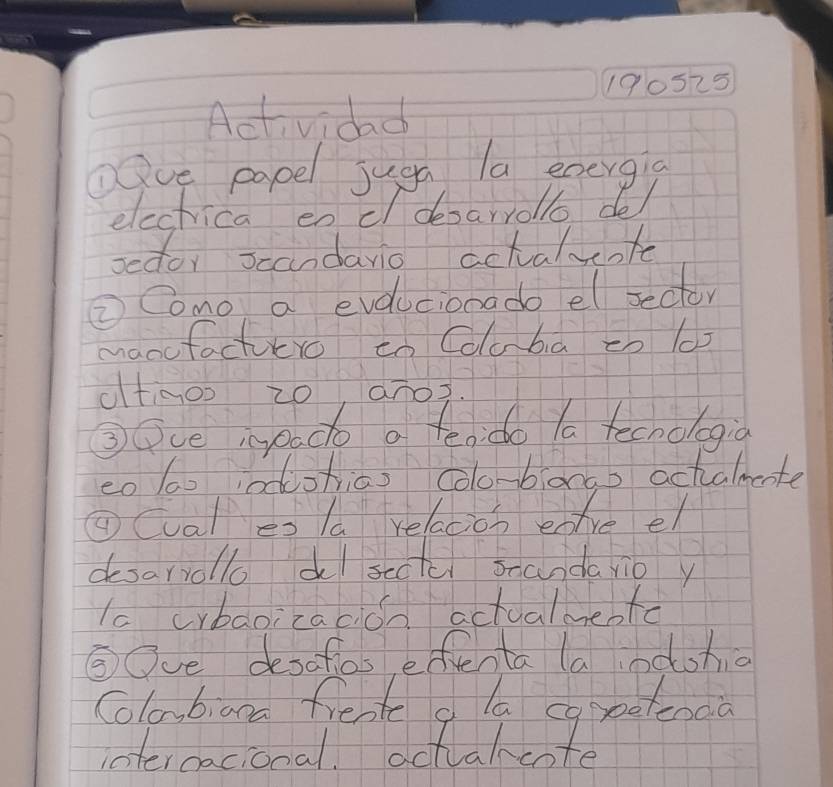 190525
Actividad
① Que papel juega la energia
electrica en el desarrollo del
sector secundario actualmente
② Como a evolucionado el sector
manofacturero en Colombia en los
ultimos 20 años.
③ Que impacto a tenido la tecnologia
en las industrias colombianas actualmente
④ Cual es la relación entre el
desarrollo del sector secundario y
la urbanización actualmente
⑤ Que desafios enfrenta la industria
Colombiana frente a la competencia
internacional. actualmente